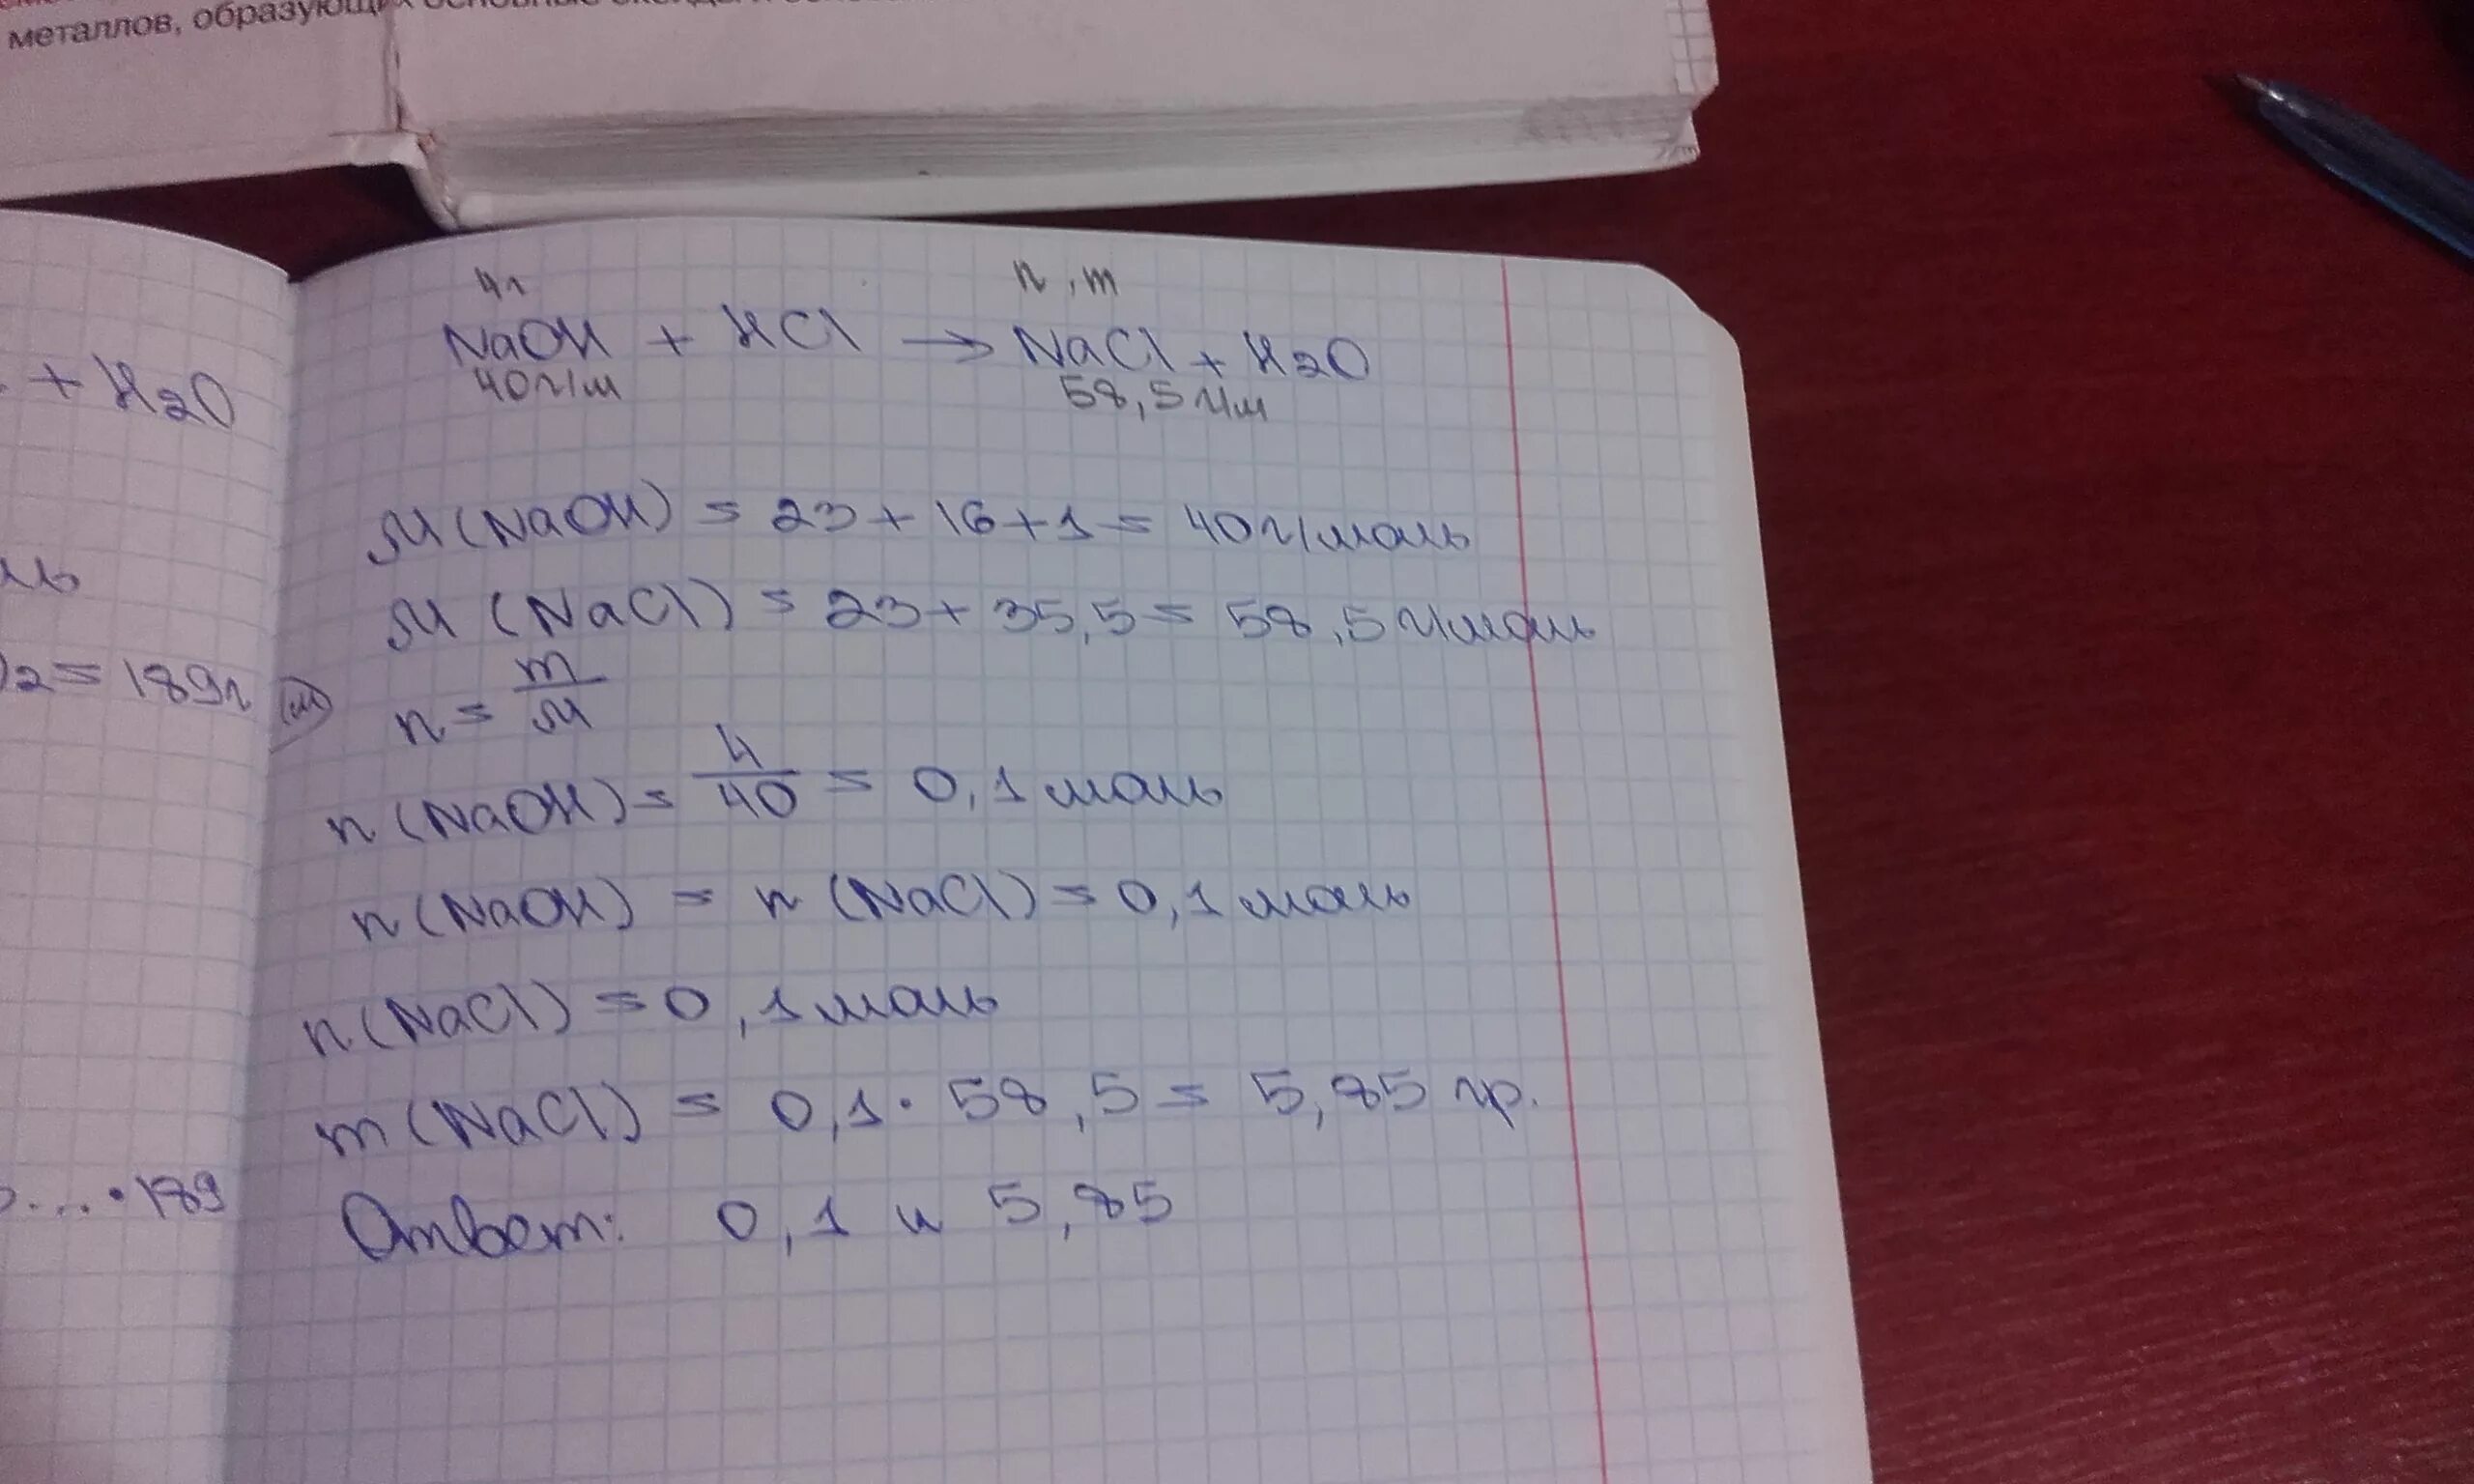 металлов, образующих
+ H2O
ль
2 = 189г (м)
. . . . • 189
4г
n, m
NaOH + HCl → NaCl + H2O
40г/м
58,5г/м
M (NaOH) = 23 + 16 + 1 = 40г/моль
M (NaCl) = 23 + 35,5 = 58,5г/моль
n = m/M
n (NaOH) = 4/40 = 0,1 моль
n (NaOH) = n (NaCl) = 0,1 моль
n (NaCl) = 0,1 моль
m (NaCl) = 0,1 · 58,5 = 5,85 гр.
Ответ: 0,1 и 5,85